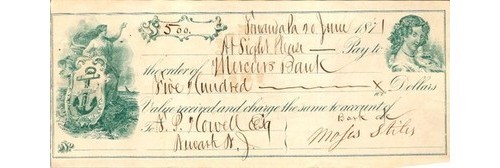 $500. Tonanda Pa 20 June 1871
At Sight Please — Pay to
the order of Mercers Bank
Five Hundred — x/100 Dollars
Value received and charge the same to account of
Bank at
To J. P. Howell Esq Moses Stiles
Newark N. J.